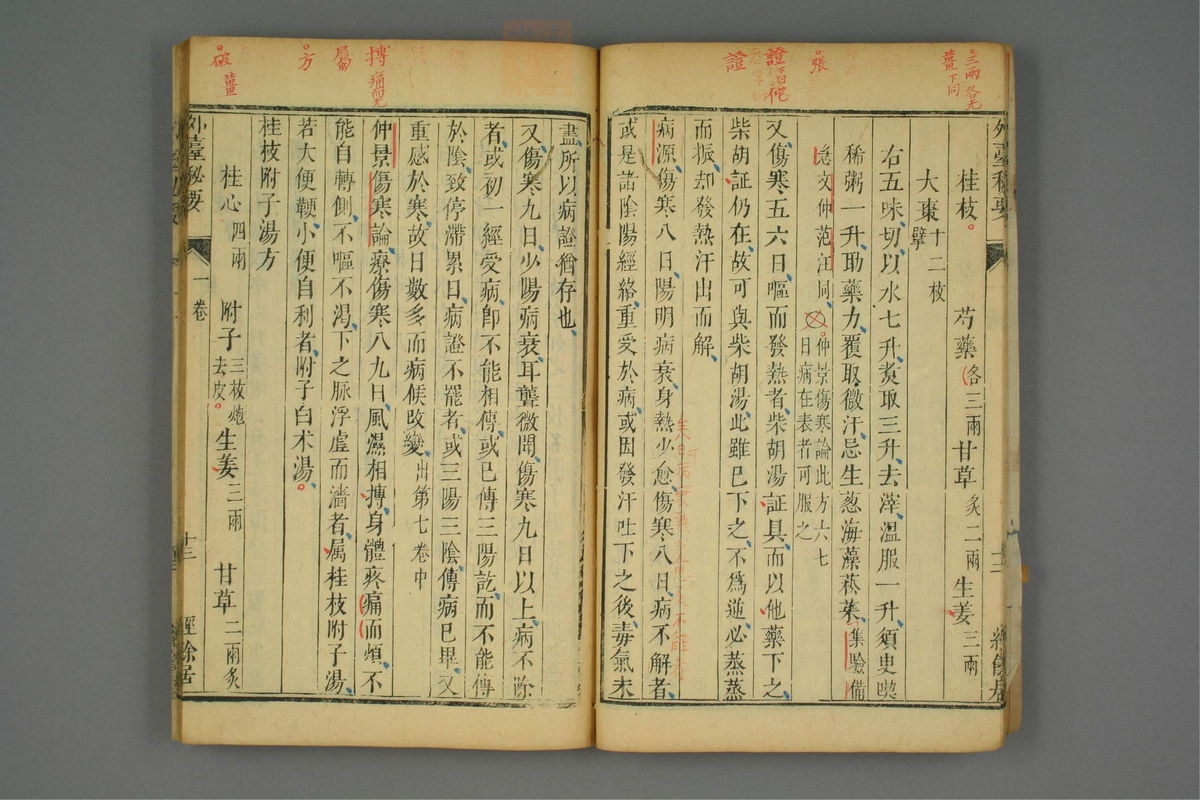 三兩各无
薑下同
張
證
證
外臺秘要
經餘居
桂枝
芍藥各三兩
甘草炙二兩
生姜三兩
大棗十二枚擘
右五味切以水七升煑取三升去滓溫服一升須臾喫
稀粥一升助藥力覆取微汗忌生葱海藻菘菜集驗備
急文仲范汪同仲景傷寒論此方六七
日病在表者可服之
又傷寒五六日嘔而發熱者柴胡湯証具而以他藥下之
柴胡証仍在故可與柴胡湯此雖已下之不爲逆必蒸蒸
而振却發熱汗出而解
病源傷寒八日陽明病衰身熱少愈傷寒八日病不解者
或是諸陰陽經絡重受於病或因發汗吐下之後毒氣未
盡所以病證猶存也
又傷寒九日少陽病衰耳聾微聞傷寒九日以上病不除
者或初一經受病卽不能相傳或已傳三陽訖而不能傳
於陰致停滯累日病證不罷者或三陽三陰傳病已畢又
重感於寒故日數多而病候改變出第七卷中
仲景傷寒論療傷寒八九日風濕相搏身體疼痛而煩不
能自轉側不嘔不渴下之脉浮虛而濇者属桂枝附子湯
若大便鞕小便自利者附子白术湯
桂枝附子湯方
桂心四兩
附子三枚炮去皮
生姜三兩
甘草二兩炙
外臺秘要
一卷
十三
經餘居
搏
痛而无
屬
方
破
薑